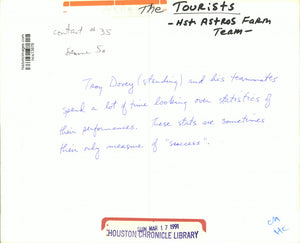 The TOURISTS
- Hst Astros Farm
Team -
contact # 35
frame 5a
Troy Dovey (standing) and his teammates
spend a lot of time looking over statistics of
their performances. These stats are sometimes
their only measure of "success".
SUN MAR 17 1991
HOUSTON CHRONICLE LIBRARY
HC